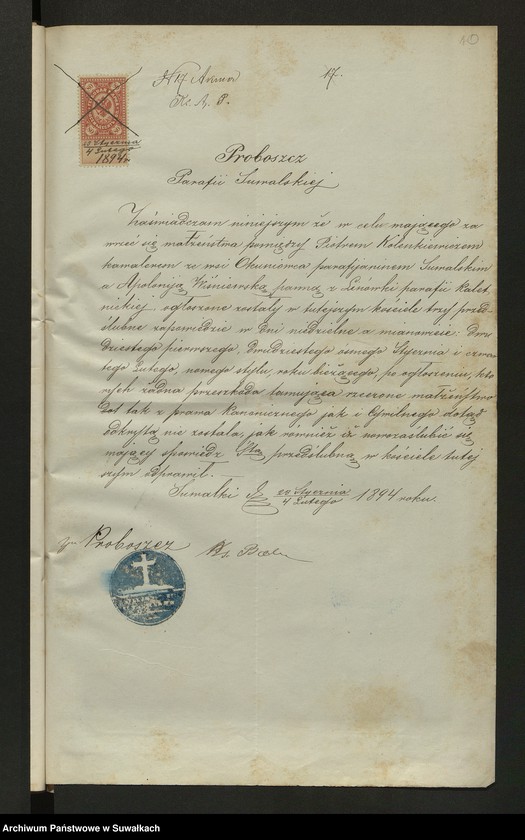 10
17.
23 Stycznia
4 Lutego
1894 r.
Proboszcz
Parafii Suwalskiej
Zaświadczam niniejszym że w celu mającego za
wrzeć się małżeństwa pomiędzy Piotrem Kolenkiewiczem
kawalerem ze wsi Okuniowca parafijaninem Suwalskim
a Apolonją panną z Lenówki parafii Kalet
nickiej ogłoszone zostały w tutejszym kościele trzy przed-
ślubne zapowiedzie w dni niedzielne a mianowicie: dwu
dziestego pierwszego, dwudziestego ósmego Stycznia i czwar
tego Lutego, nowego stylu, roku bieżącego, po ogłoszeniu, któ
rych żadna przeszkoda tamująca rzeczone małżeństwo
bądź tak z prawa kanonicznego jak i Cywilnego dotąd
odkrytą nie została, jak również iż nowozaślubić się
mający spowiedź Stą przedślubną w kościele tutej
szym odprawił.
Suwałki d. 23 Stycznia / 4 Lutego 1894 roku.
Proboszcz Ks.
Archiwum Państwowe w Suwałkach